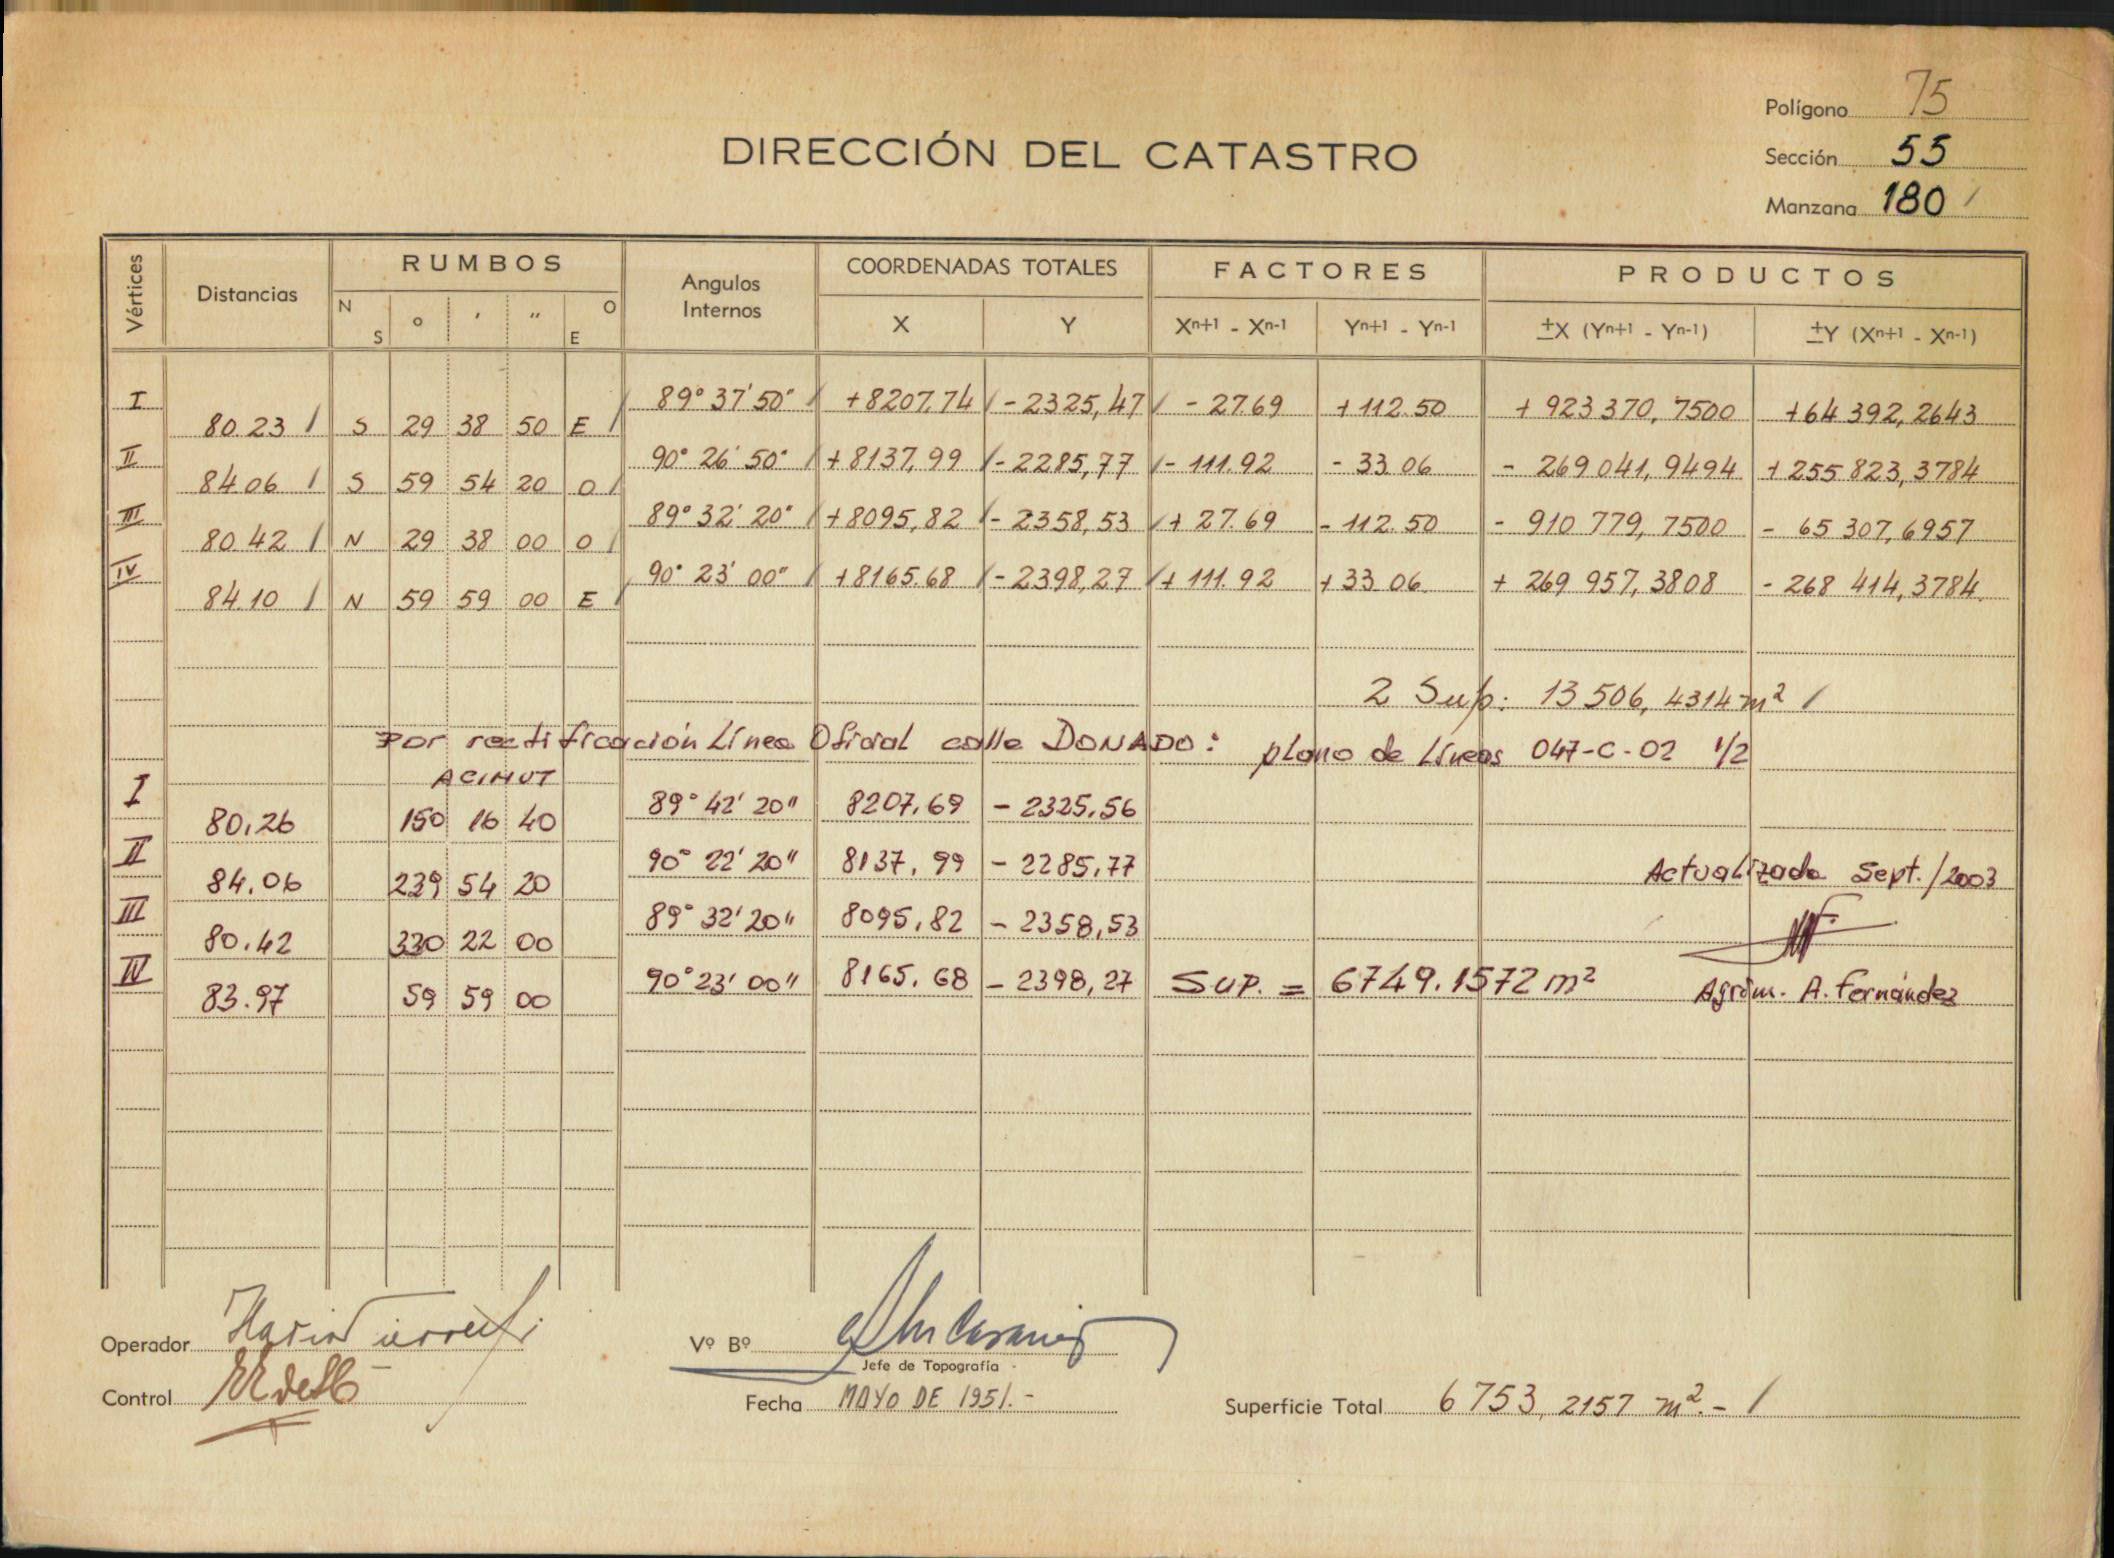 Polígono 75
DIRECCIÓN DEL CATASTRO
Sección 55
Manzana 180 /
Vértices Distancias RUMBOS Angulos Internos COORDENADAS TOTALES FACTORES PRODUCTOS
N S ° ' " O E X Y Xn+1 - Xn-1 Yn+1 - Yn-1 ±X (Yn+1 - Yn-1) ±Y (Xn+1 - Xn-1)
I 89° 37' 50" / +8207.74 / - 2325,47 / - 27.69 + 112.50 + 923 370, 7500 + 64 392, 2643
80.23 / S 29 38 50 E /
II 90° 26' 50" / + 8137,99 / - 2285,77 / - 111.92 - 33.06 - 269 041, 9494 + 255 823, 3784
84.06 / S 59 54 20 O /
III 89° 32' 20" / + 8095,82 / - 2358,53 / + 27.69 - 112.50 - 910 779, 7500 - 65 307, 6957
80.42 / N 29 38 00 O /
IV 90° 23' 00" / +8165.68 / - 2398,27 / + 111.92 + 33.06 + 269 957, 3808 - 268 414, 3784
84.10 / N 59 59 00 E /
2 Sup: 13 506, 4314 m² /
Por rectificación Línea Oficial calle DONADO: plano de Líneas 047-C-02 1/2
ACIMUT
I 89° 42' 20" 8207,69 - 2325,56
80,26 150 16 40
II 90° 22' 20" 8137,99 - 2285,77
84,06 239 54 20 Actualizado Sept./2003
III 89° 32' 20" 8095,82 - 2358,53
80.42 330 22 00
IV 90° 23' 00" 8165.68 - 2398,27 SUP. = 6749.1572 m²
83.97 59 59 00 Agrim. A. Fernández
Operador
Vº Bº
Jefe de Topografía
Control
Fecha MAYO DE 1951.-
Superficie Total 6 753, 2157 m².- /